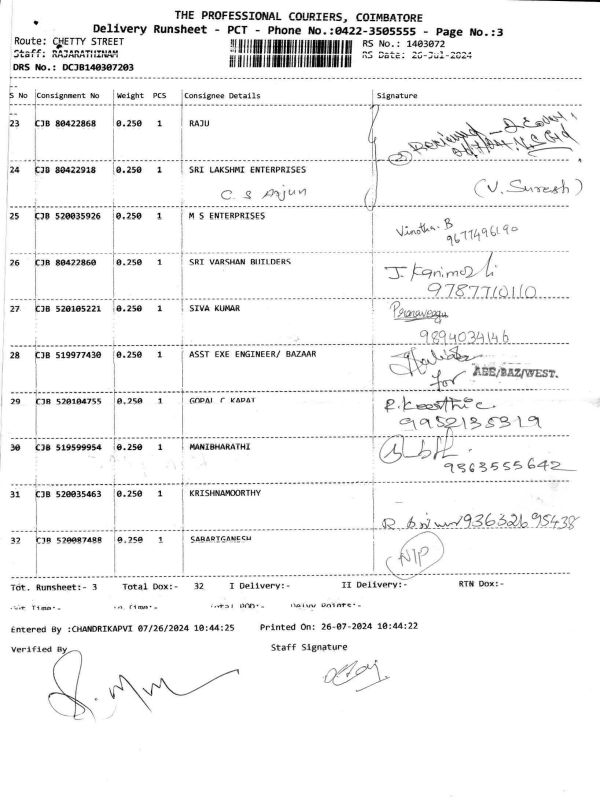 THE PROFESSIONAL COURIERS, COIMBATORE
Delivery Runsheet - PCT - Phone No.:0422-3505555 - Page No.:3
Route: CHETTY STREET RS No.: 1403072
Staff: RAJARATHINAM RS Date: 26-Jul-2024
DRS No.: DCJB140307203
S No Consignment No Weight PCS Consignee Details Signature
23 CJB 80422868 0.250 1 RAJU
24 CJB 80422918 0.250 1 SRI LAKSHMI ENTERPRISES
C S Arjun (V. Suresh)
25 CJB 520035926 0.250 1 M S ENTERPRISES Vinotha. B
9677496190
26 CJB 80422860 0.250 1 SRI VARSHAN BUILDERS J. Kanimozhi
9787710110
27 CJB 520105221 0.250 1 SIVA KUMAR
9894034146
28 CJB 519977430 0.250 1 ASST EXE ENGINEER/ BAZAAR
for AEE/BAZ/WEST.
29 CJB 520104755 0.250 1 GOPAL C KAPAT R. Keerthic
9952135319
30 CJB 519599954 0.250 1 MANIBHARATHI
9363555642
31 CJB 520035463 0.250 1 KRISHNAMOORTHY
R. 9363269 5438
32 CJB 520087488 0.250 1 SABARIGANESH N/P
Tot. Runsheet:- 3 Total Dox:- 32 I Delivery:- II Delivery:- RTN Dox:-
Out Time:- In Time:- Total POD:- Delvy Points:-
Entered By :CHANDRIKAPVI 07/26/2024 10:44:25 Printed On: 26-07-2024 10:44:22
Verified By Staff Signature